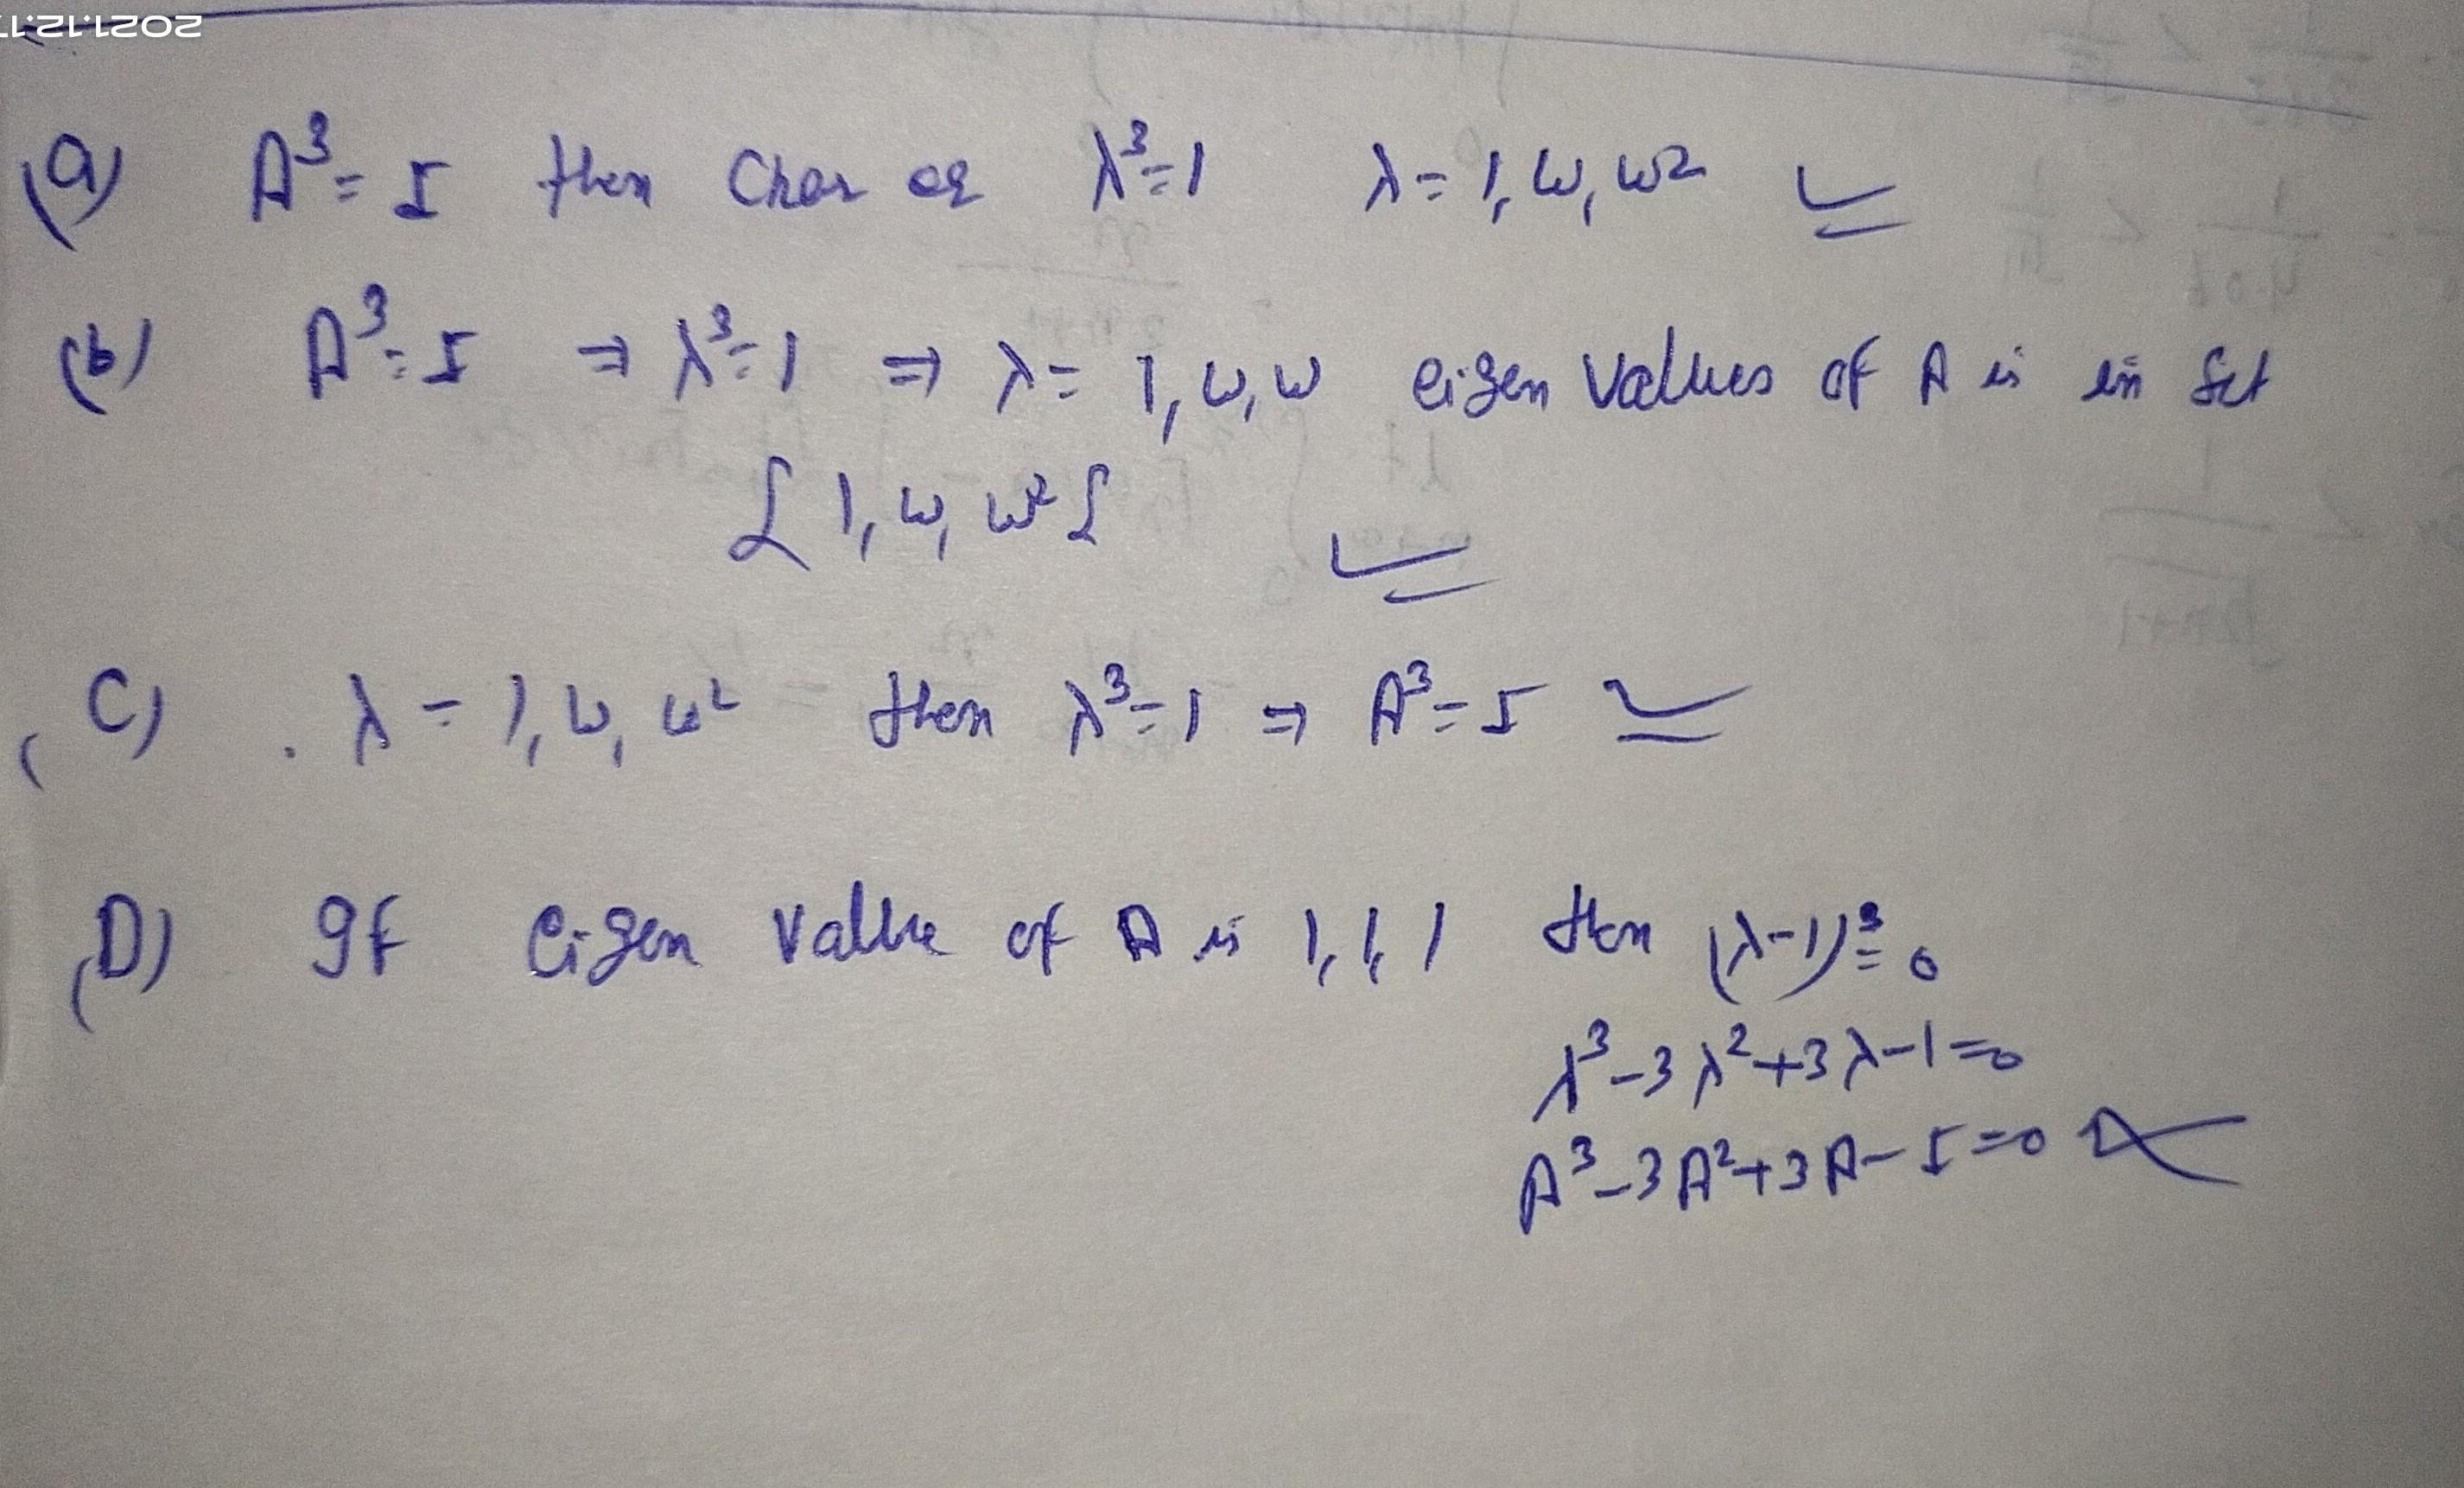 (a) A³ = I then Char eq λ³=1 λ = 1, ω, ω² 
(b) A³ = I ⇒ λ³=1 ⇒ λ = 1, ω, ω eigen values of A is in set
{ 1, ω, ω² {
(C) . λ = 1, ω, ω² then λ³=1 ⇒ A³ = I
(D) If eigen value of A is 1, 1, 1 then (λ-1)³ = 0
λ³-3λ²+3λ-1=0
A³-3A²+3A-I=0